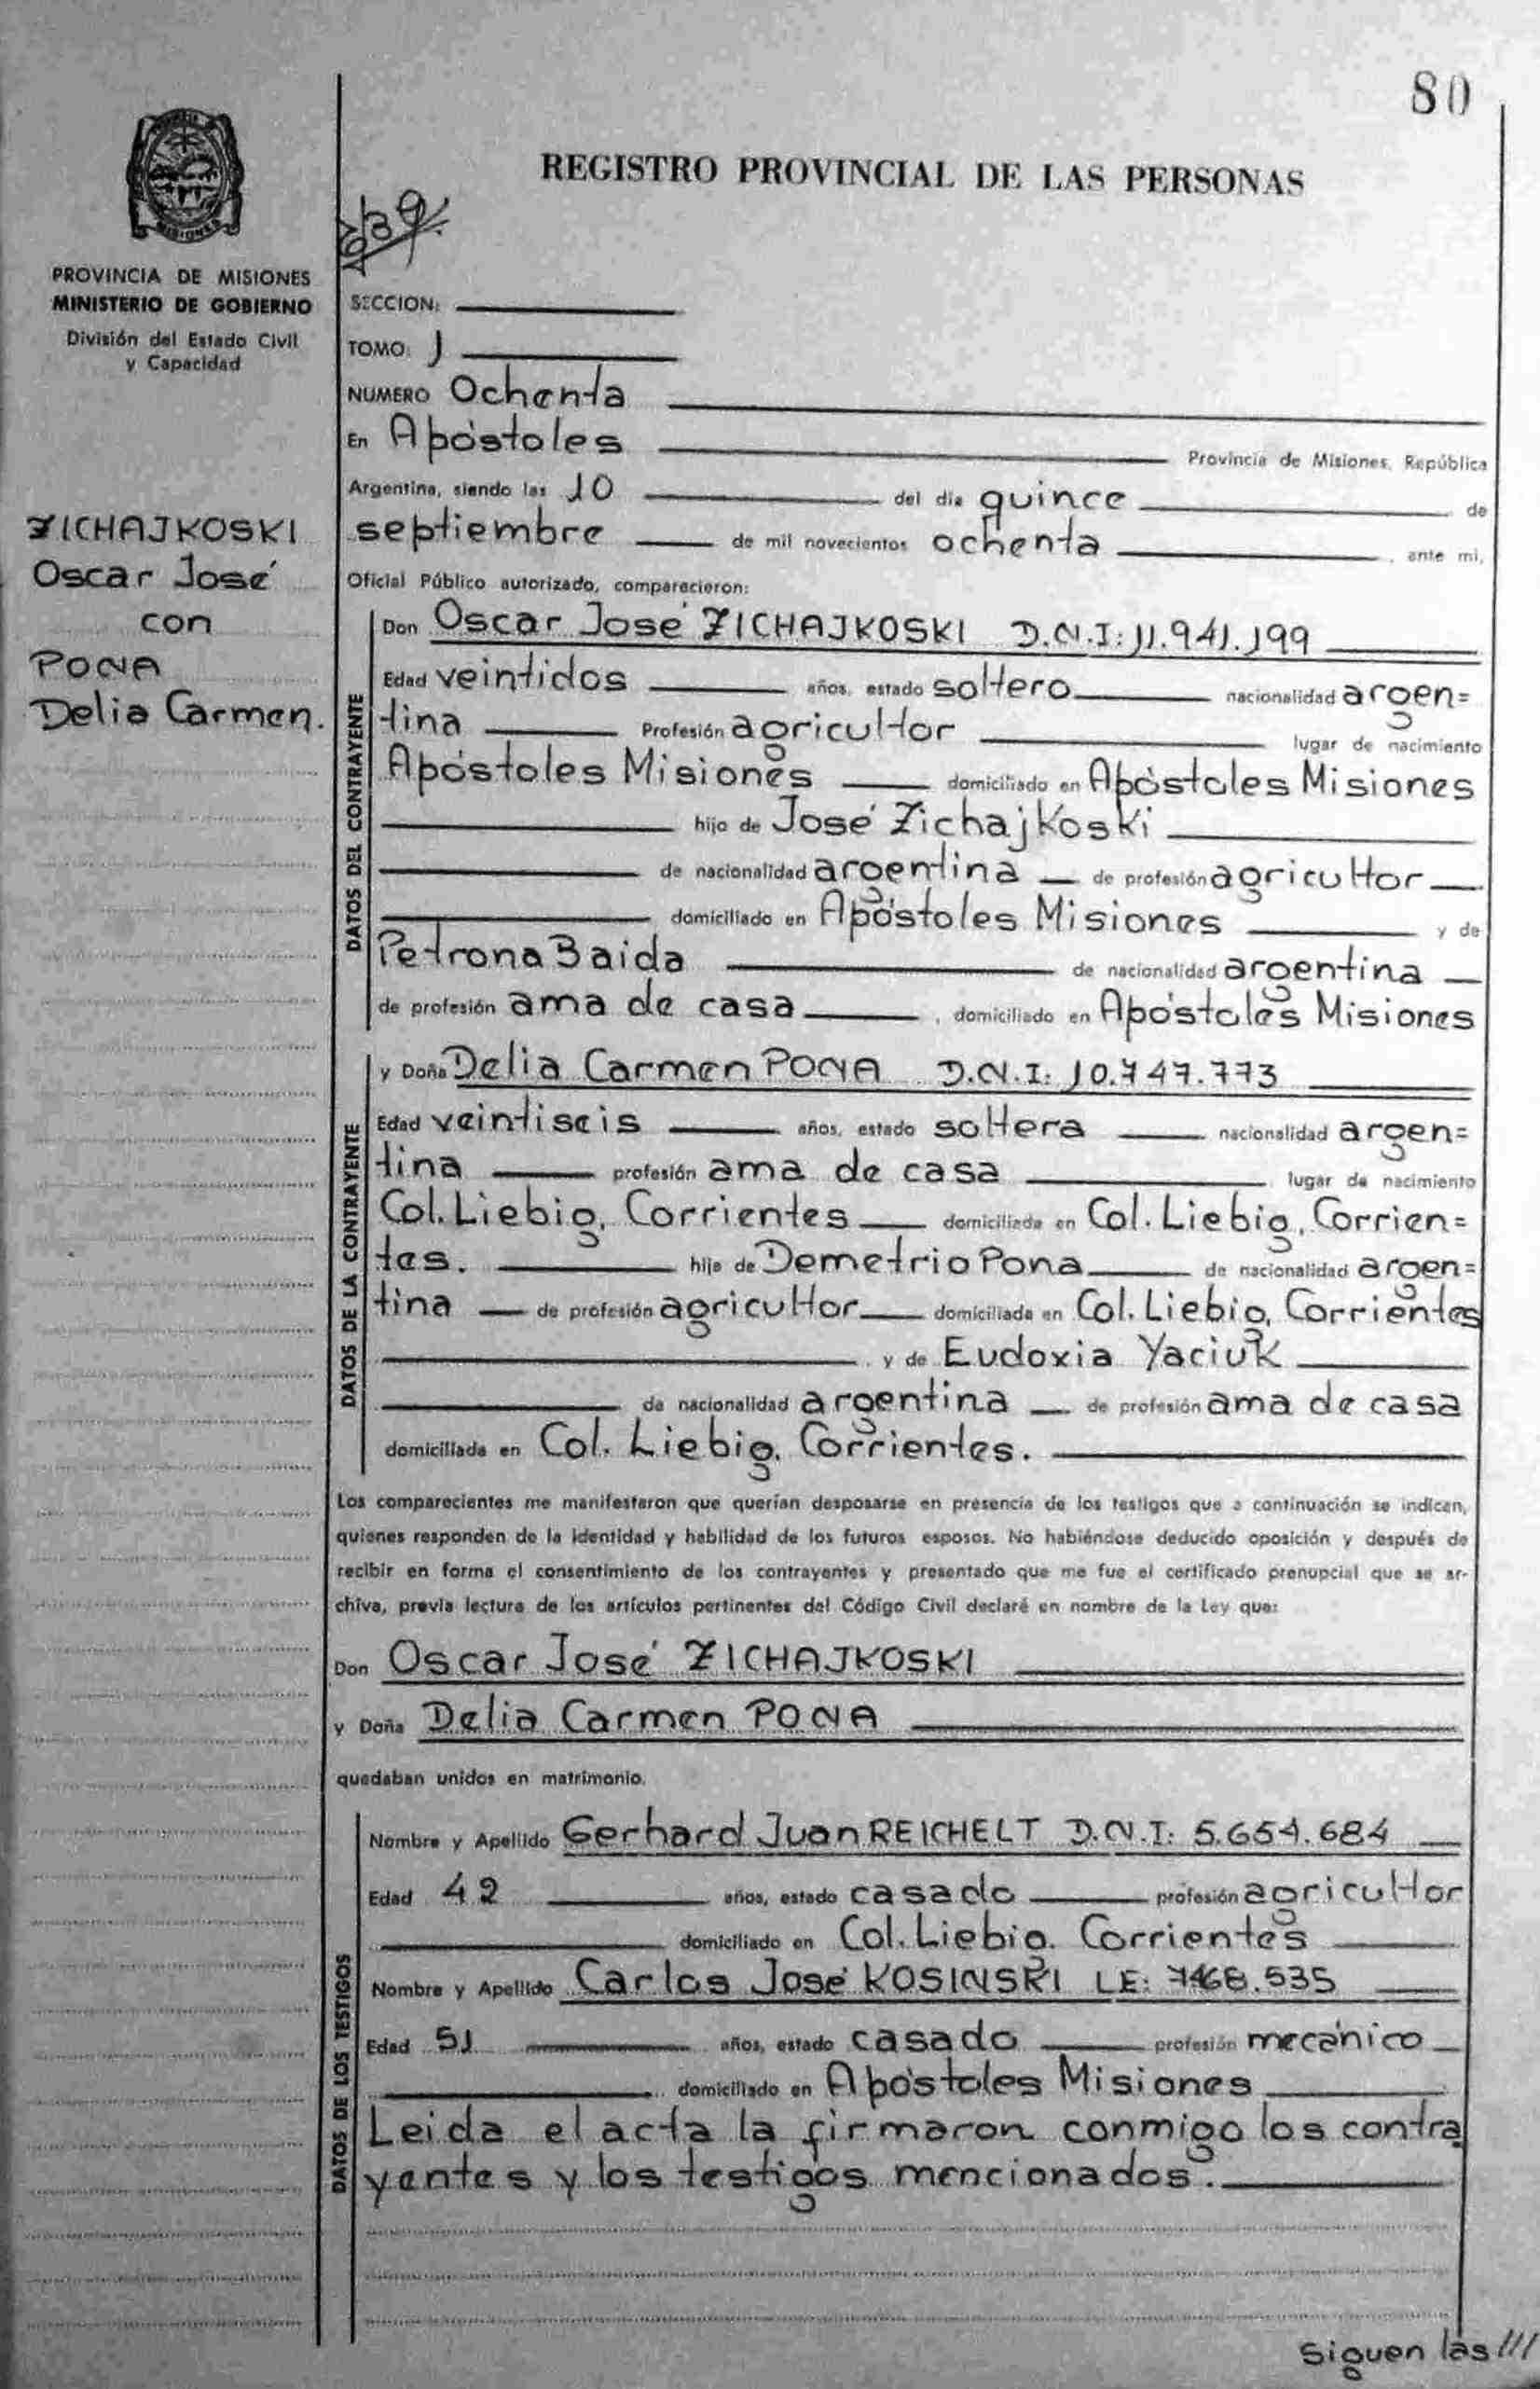 80
REGISTRO PROVINCIAL DE LAS PERSONAS
MISIONES
PROVINCIA DE MISIONES
MINISTERIO DE GOBIERNO
División del Estado Civil
y Capacidad
ZICHAJKOSKI
Oscar José
con
PONA
Delia Carmen.
SECCION:
TOMO: 1
NUMERO Ochenta
En Apóstoles Provincia de Misiones, República
Argentina, siendo las 10 del día quince de
septiembre de mil novecientos ochenta, ante mi,
Oficial Público autorizado, comparecieron:
DATOS DEL CONTRAYENTE
Don Oscar José ZICHAJKOSKI D.N.I: 11.941.199
Edad veintidos años, estado soltero nacionalidad argen=
tina Profesión agricultor lugar de nacimiento
Apóstoles Misiones domiciliado en Apóstoles Misiones
hijo de José Zichajkoski
de nacionalidad argentina de profesión agricultor
domiciliado en Apóstoles Misiones y de
Petrona Baida de nacionalidad argentina
de profesión ama de casa, domiciliado en Apóstoles Misiones
DATOS DE LA CONTRAYENTE
y Doña Delia Carmen PONA D.N.I: 10.747.773
Edad veintiseis años, estado soltera nacionalidad argen=
tina profesión ama de casa lugar de nacimiento
Col. Liebig, Corrientes domiciliada en Col. Liebig, Corrien=
tes. hija de Demetrio Pona de nacionalidad argen=
tina de profesión agricultor domiciliada en Col. Liebig, Corrientes
y de Eudoxia Yaciuk
de nacionalidad argentina de profesión ama de casa
domiciliada en Col. Liebig, Corrientes.
Los comparecientes me manifestaron que querían desposarse en presencia de los testigos que a continuación se indican,
quienes responden de la identidad y habilidad de los futuros esposos. No habiéndose deducido oposición y después de
recibir en forma el consentimiento de los contrayentes y presentado que me fue el certificado prenupcial que se ar-
chiva, previa lectura de los artículos pertinentes del Código Civil declaré en nombre de la Ley que:
Don Oscar José ZICHAJKOSKI
y Doña Delia Carmen PONA
quedaban unidos en matrimonio.
DATOS DE LOS TESTIGOS
Nombre y Apellido Gerhard Juan REICHELT D.N.I: 5.654.684
Edad 42 años, estado casado profesión agricultor
domiciliado en Col. Liebig. Corrientes
Nombre y Apellido Carlos José KOSINSKI LE: .535
Edad 51 años, estado casado profesión mecánico
domiciliado en Apóstoles Misiones
Leida el acta la firmaron conmigo los contra
yentes y los testigos mencionados.
Siguen las ///